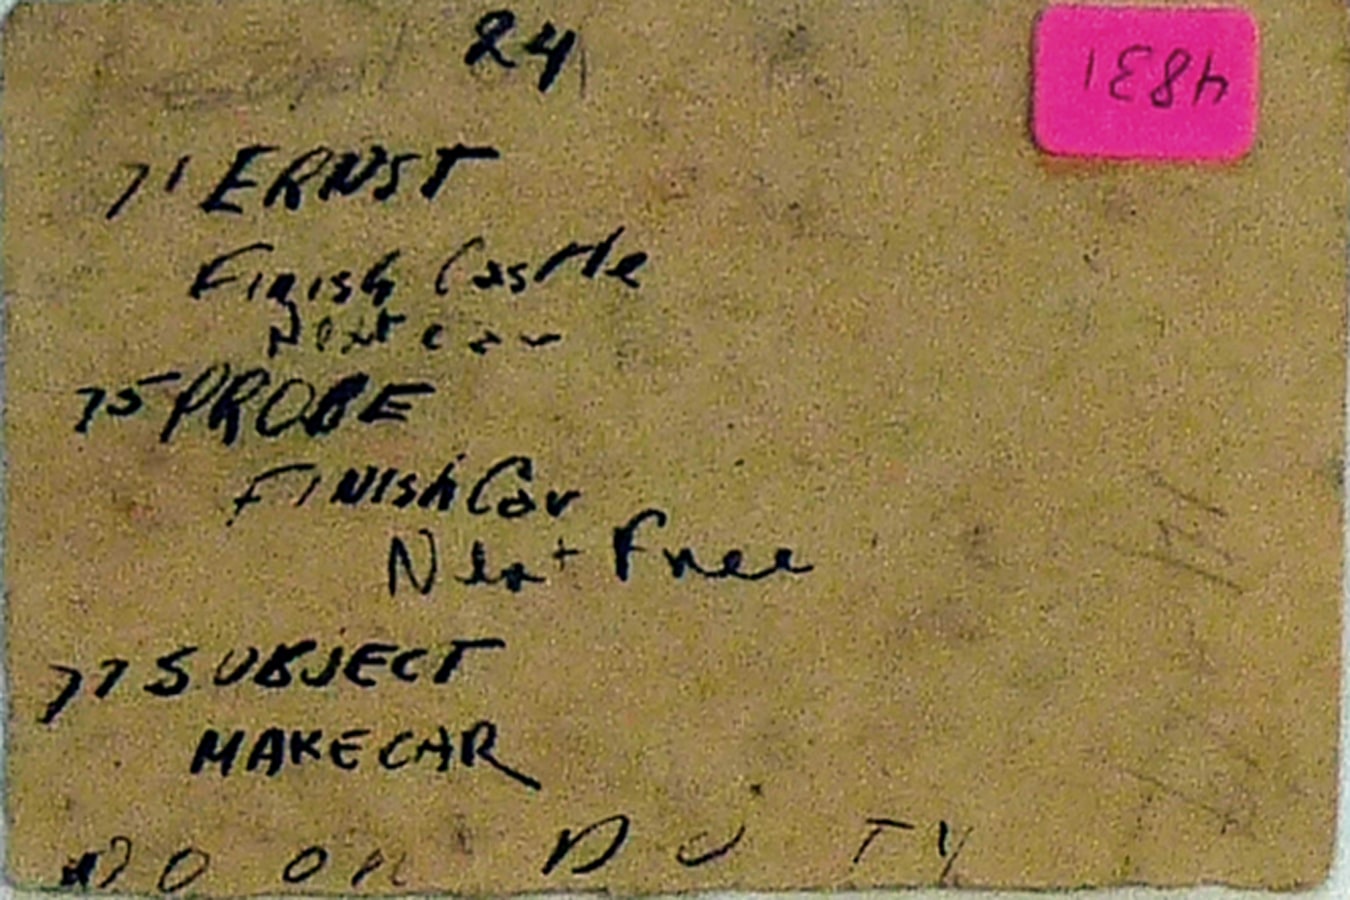 24
4831
71 ERNST
Finish Castle
Next car
75 PROBE
FINISH Car
Next Free
77 SUBJECT
MAKE CAR
DUTY